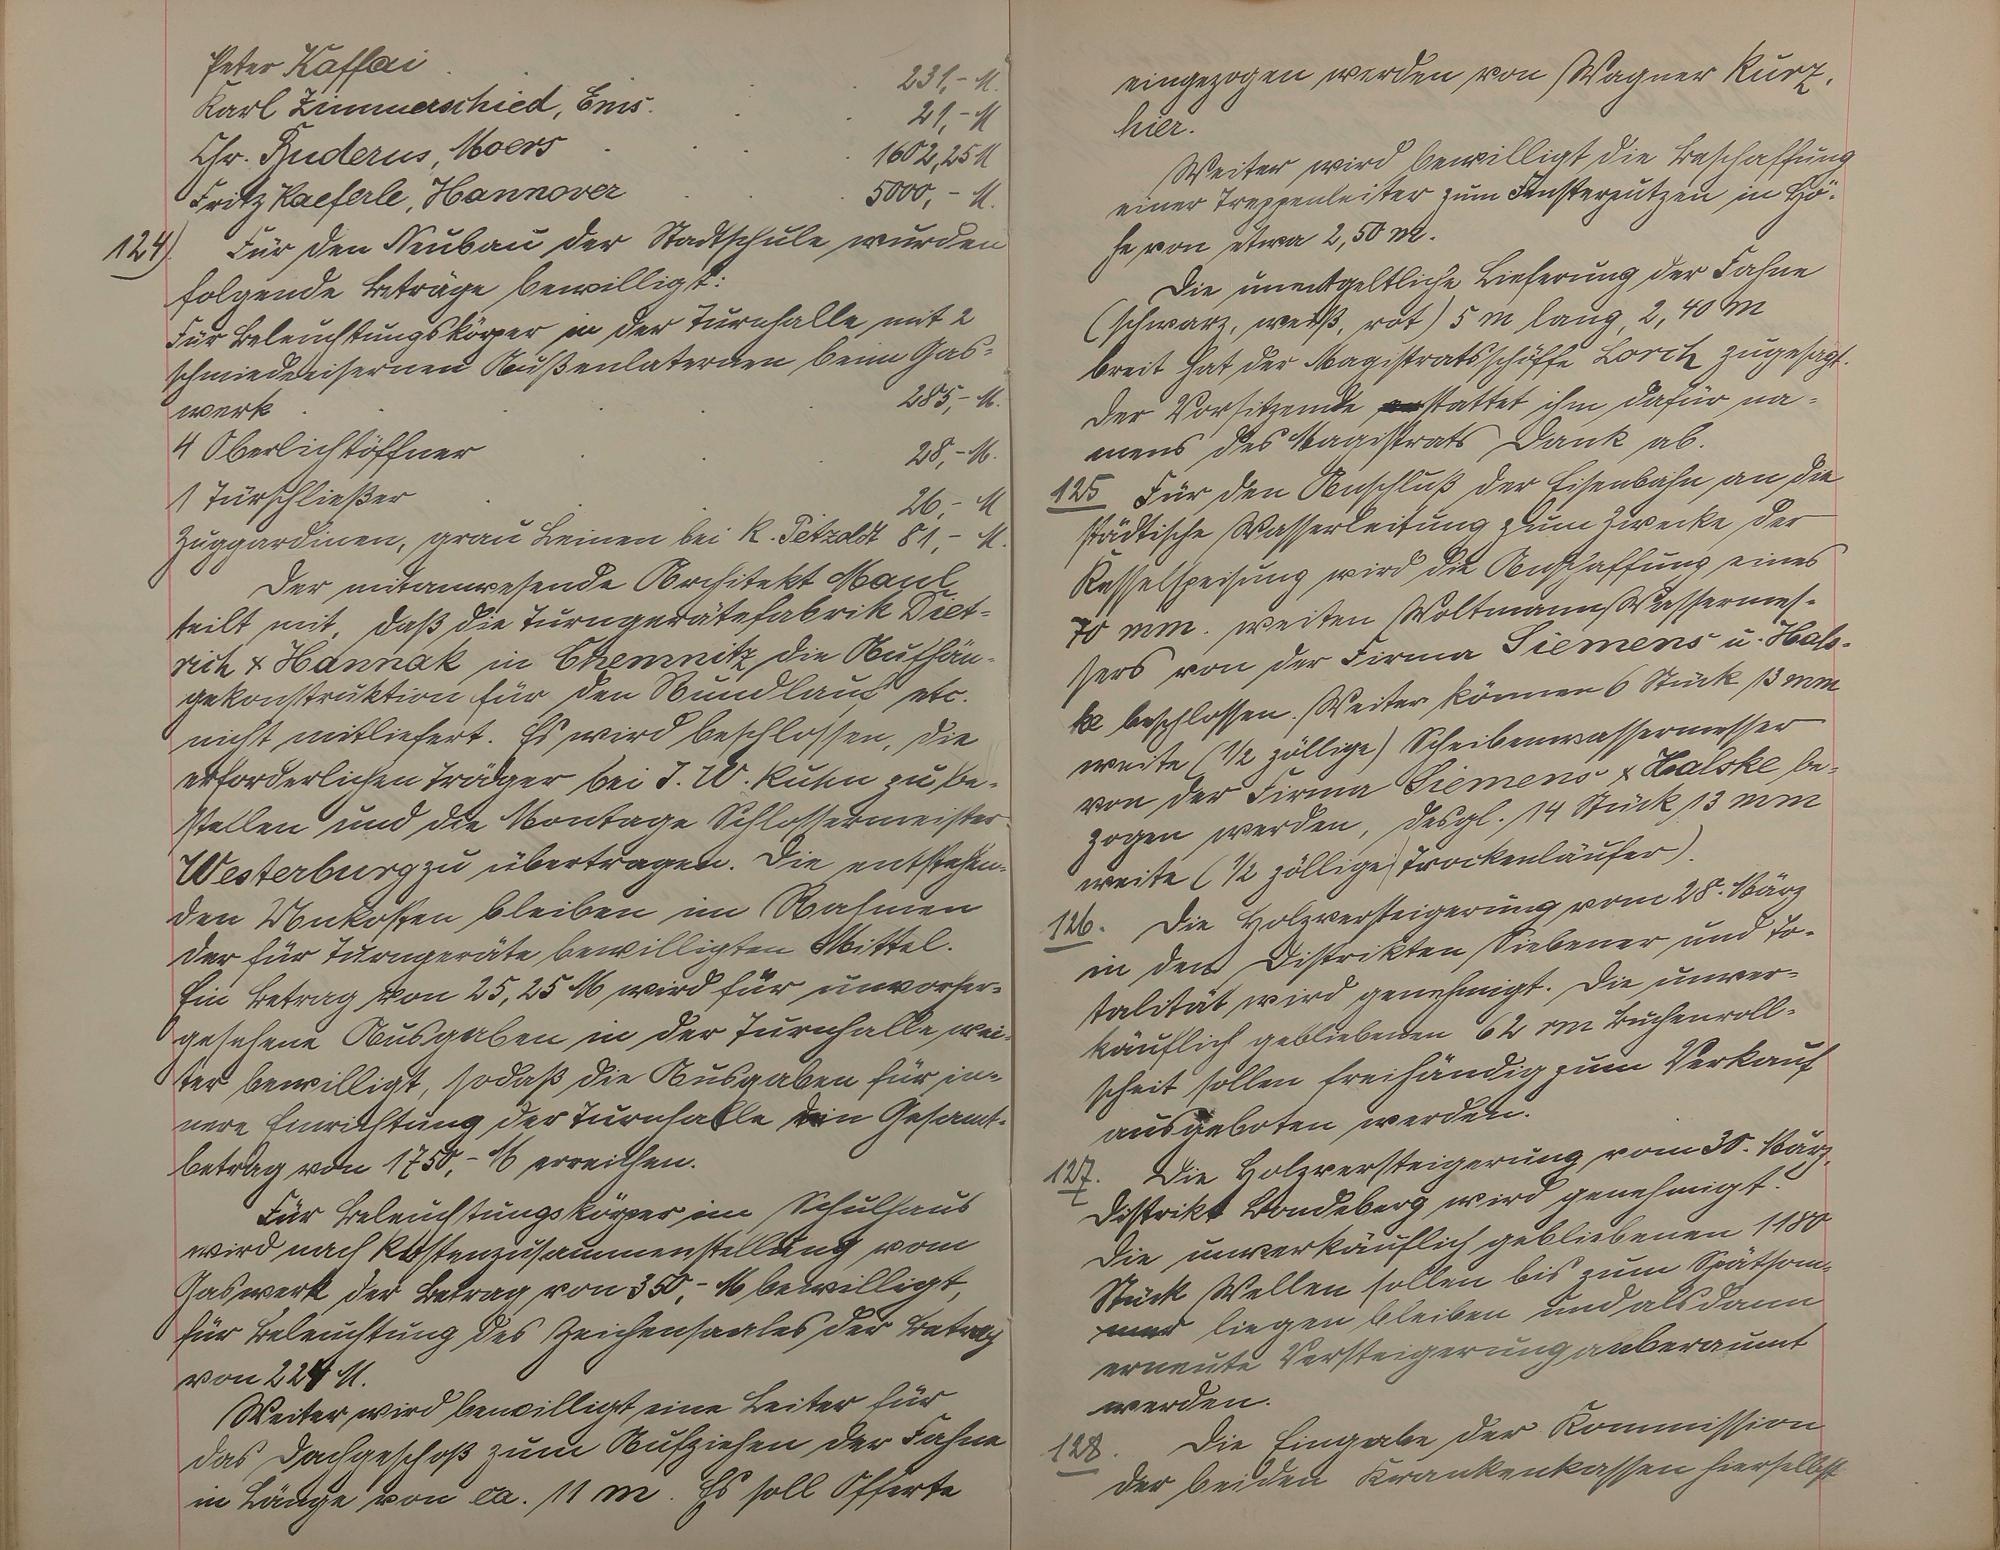 Peter Kaffai 231,- M.
Karl Zimmerschied, Ems. 21,- M
Chr. Buderus, Moers 1602,25 M
Fritz Kaeferle, Hannover 5000,- M.
124) Für den Neubau der Stadtschule wurden
folgende Beträge bewilligt:
Für Beleuchtungskörper in der Turnhalle mit 2
schmiedeeisernen Außenlaternen beim Gas-
werk 285,- M.
4 Oberlichtöffner 28,- M.
1 Türschließer 26,- M
Zuggardinen, grau Leinen bei K. Petzoldt 81,- M.
Der mitanwesende Architekt Maul
teilt mit, daß die Turngerätefabrik Diet-
rich & Hannak in Chemnitz die Aufhän-
gekonstruktion für den Rundlauf etc.
nicht mitliefert. Es wird beschlossen, die
erforderlichen Träger bei J. W. Kuhn zu be-
stellen und die Montage Schlossermeister
Westerburg zu übertragen. Die entstehen-
den Unkosten bleiben im Rahmen
der für Turngeräte bewilligten Mittel.
Ein Betrag von 25,25 M wird für unvorher-
gesehene Ausgaben in der Turnhalle wei-
ter bewilligt, sodaß die Ausgaben für in-
nere Einrichtung der Turnhalle den Gesamt-
betrag von 1750,- M erreichen.
Für Beleuchtungskörper im Schulhaus
wird nach Kostenzusammenstellung vom
Gaswerk der Betrag von 350,- M bewilligt,
für Beleuchtung des Zeichensaales der Betrag
von 224 M.
Weiter wird bewilligt eine Leiter für
das Dachgeschoß zum Aufziehen der Fahne
in Länge von ca. 11 m. Es soll Offerte
eingezogen werden von Wagner Kurz,
hier.
Weiter wird bewilligt die Beschaffung
einer Treppenleiter zum Fensterputzen in Hö-
he von etwa 2,50 m.
Die unentgeltliche Lieferung der Fahne
(schwarz, weiß, rot) 5 m lang, 2,40 m
breit hat der Magistratsschöffe Lorch zugesagt.
Der Vorsitzende stattet ihm dafür na-
mens des Magistrats Dank ab.
125 Für den Anschluß der Eisenbahn an die
städtische Wasserleitung zum Zwecke der
Kesselspeisung wird die Anschaffung eines
70 mm. weiten Woltmann Wassermes-
sers von der Firma Siemens u. Hals-
ke beschlossen. Weiter können 6 Stück 13 mm
weite (1/2 zöllige) Scheibenwassermesser
von der Firma Siemens & Halske be-
zogen werden, desgl. 14 Stück 13 mm
weite (1/2 zöllige Trockenläufer).
126. Die Holzversteigerung vom 28. März
in den Distrikten Siebener und To-
talität wird genehmigt. Die unver-
käuflich gebliebenen 62 rm Buchenroll-
scheit sollen freihändig zum Verkauf
ausgeboten werden.
127. Die Holzversteigerung vom 30. März,
Distrikt Bondeberg wird genehmigt.
Die unverkäuflich gebliebenen 1180
Stück Wellen sollen bis zum Spätsom-
mer liegen bleiben und alsdann
erneute Versteigerung anberaumt
werden.
128. Die Eingabe der Kommission
der beiden Krankenkassen hierselbst